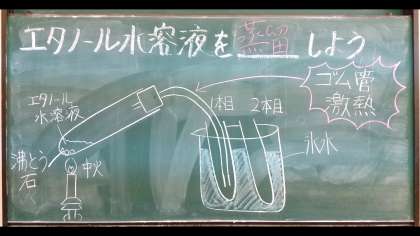 エタノール水溶液を蒸留しよう
ゴム管
激熱
エタノール
水溶液
1本目
2本目
氷水
沸とう
石
中火